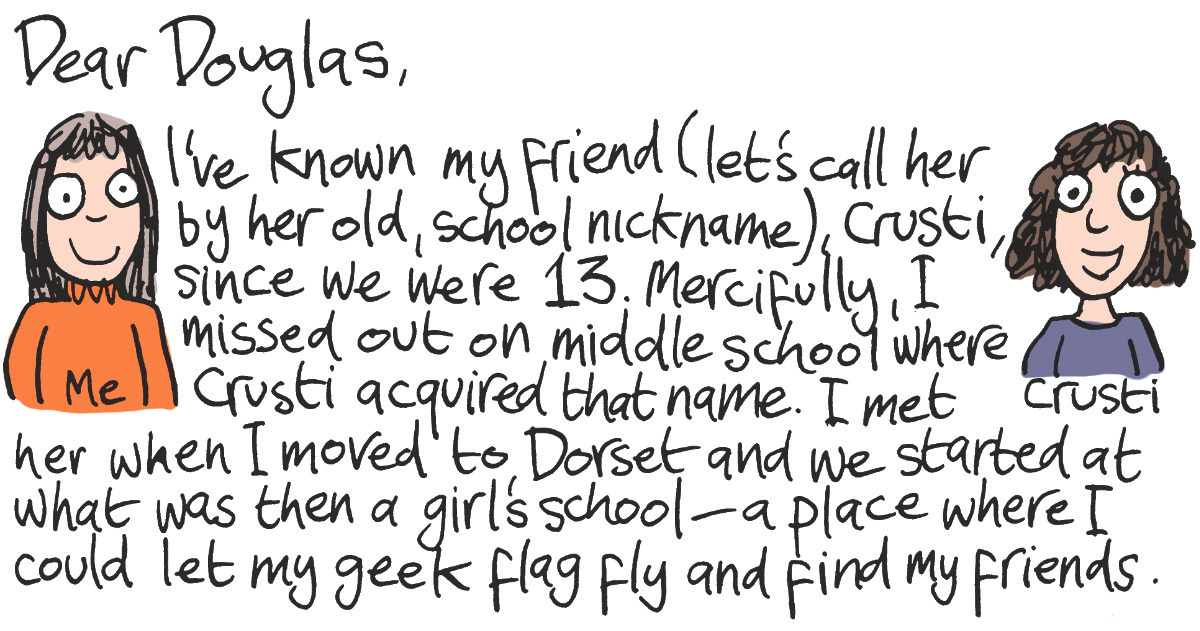 Dear Douglas,
I've known my friend (let's call her
by her old, school nickname), Crusti,
since we were 13. Mercifully, I
missed out on middle school where
Crusti acquired that name. I met
her when I moved to Dorset and we started at
what was then a girl's school—a place where I
could let my geek flag fly and find my friends.
Me
Crusti